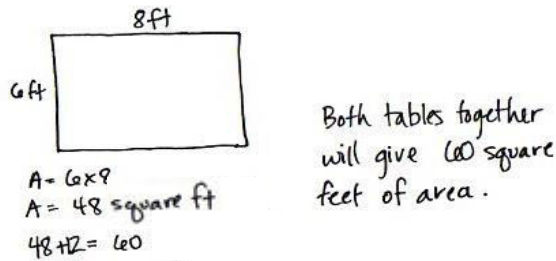 8ft
6ft
A = 6x8
A = 48 square ft
48+12 = 60
Both tables together
will give 60 square
feet of area.